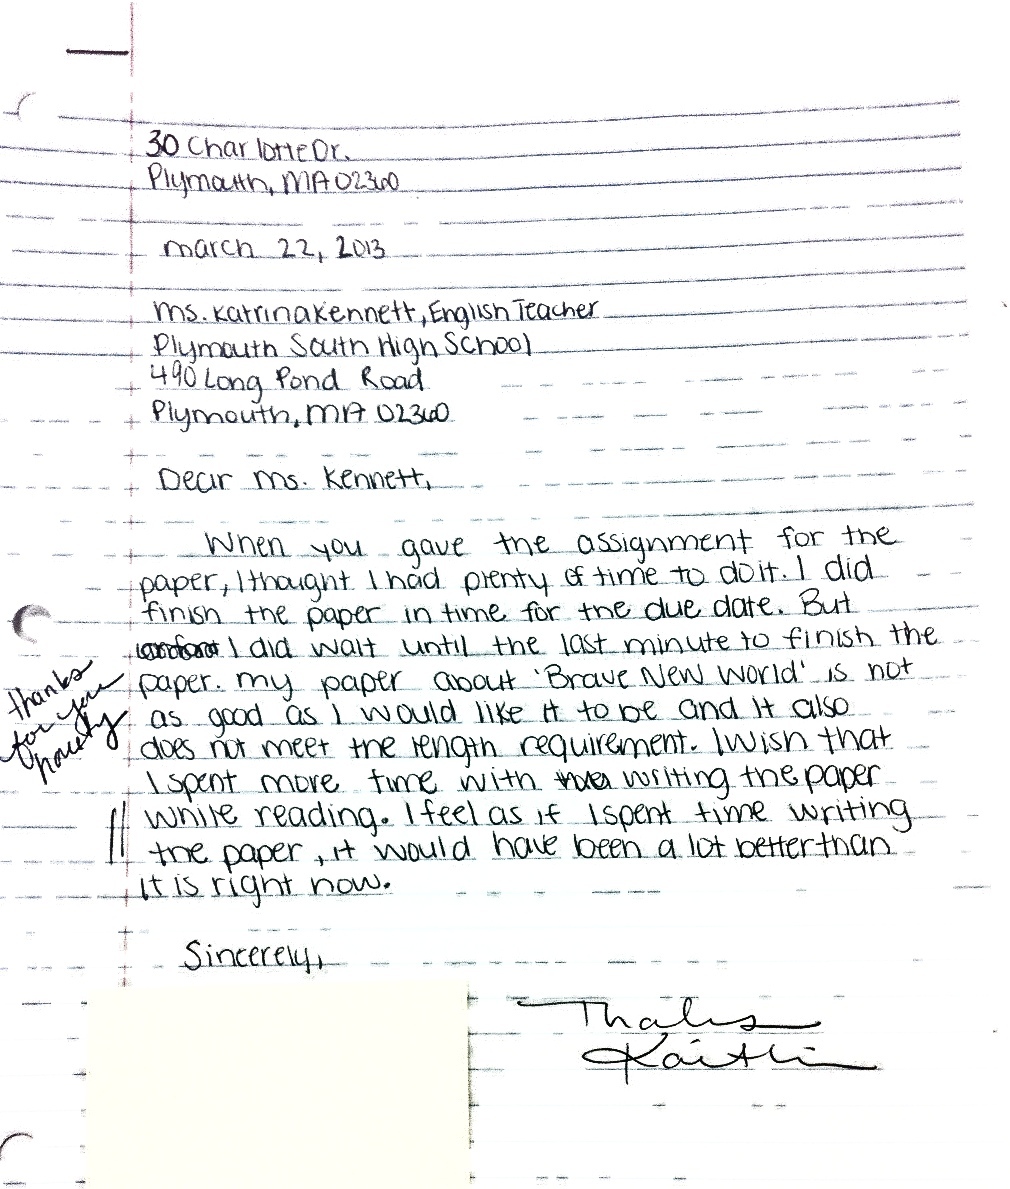 30 Charlotte Dr.
Plymouth, MA 02360
march 22, 2013
Ms. Katrina Kennett, English Teacher
Plymouth South High School
490 Long Pond Road
Plymouth, MA 02360
Dear Ms. Kennett,
When you gave the assignment for the
paper, I thought I had plenty of time to do it. I did
finish the paper in time for the due date. But
I did wait until the last minute to finish the
paper. My paper about 'Brave New World' is not
as good as I would like it to be and it also
does not meet the length requirement. I wish that
I spent more time with writing the paper
while reading. I feel as if I spent time writing
the paper, it would have been a lot better than
it is right now.
thanks
for you
honesty
Sincerely,
Kaitlin